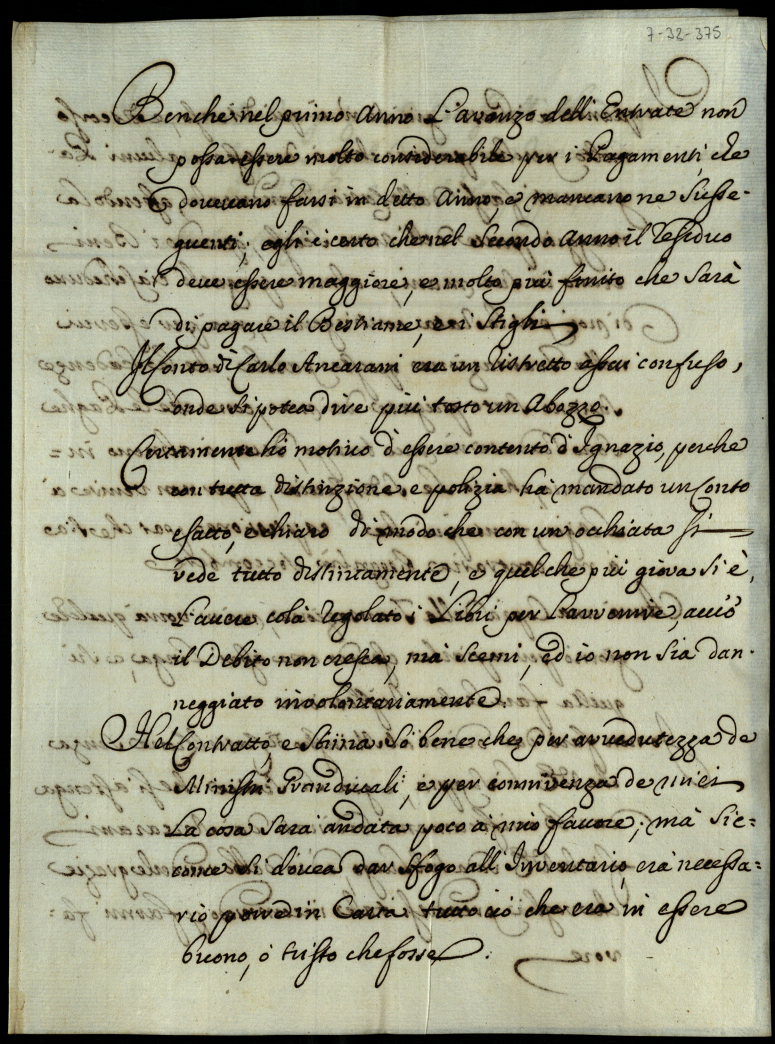 7-32-375
Benche nel primo Anno L'avanzo delli Entrate non
possa essere molto considerabile per i Pagamenti, che
dovevano farsi in detto Anno, e mancarone Susse-
guenti, egli è certo che nel Secondo Anno il residuo
deve essere maggiore, e molto più finito che Sarà
di pagare il Bestiame, e i Stigli
Il Conto di Carlo Ancarani era un ristretto assai confuso,
onde si potea dire più tosto un Abozzo.
Certamente hò motivo d'essere contento d'Ignazio, perche
con tutta distinzione, e polizia hà mandato un Conto
esatto, e chiaro di modo che con un occhiata si
vede tutto distintamente, e quel che più giova si è,
L'avere colà regolato i Libri per L'avvenire, acciò
il Debito non cresca, mà Scemi, ed io non Sia dan-
neggiato involontariamente
Nel Contratto, e Stima Sò bene che per avvedutezza de
Ministri Granducali, e per connivenza de miei
La cosa Sarà andata poco à mio favore; mà Sic=
come si dovea dar Sfogo all'Inventario, era necessa=
rio porre in Carta tutto ciò che era in essere
buono, ò tristo che fosse.